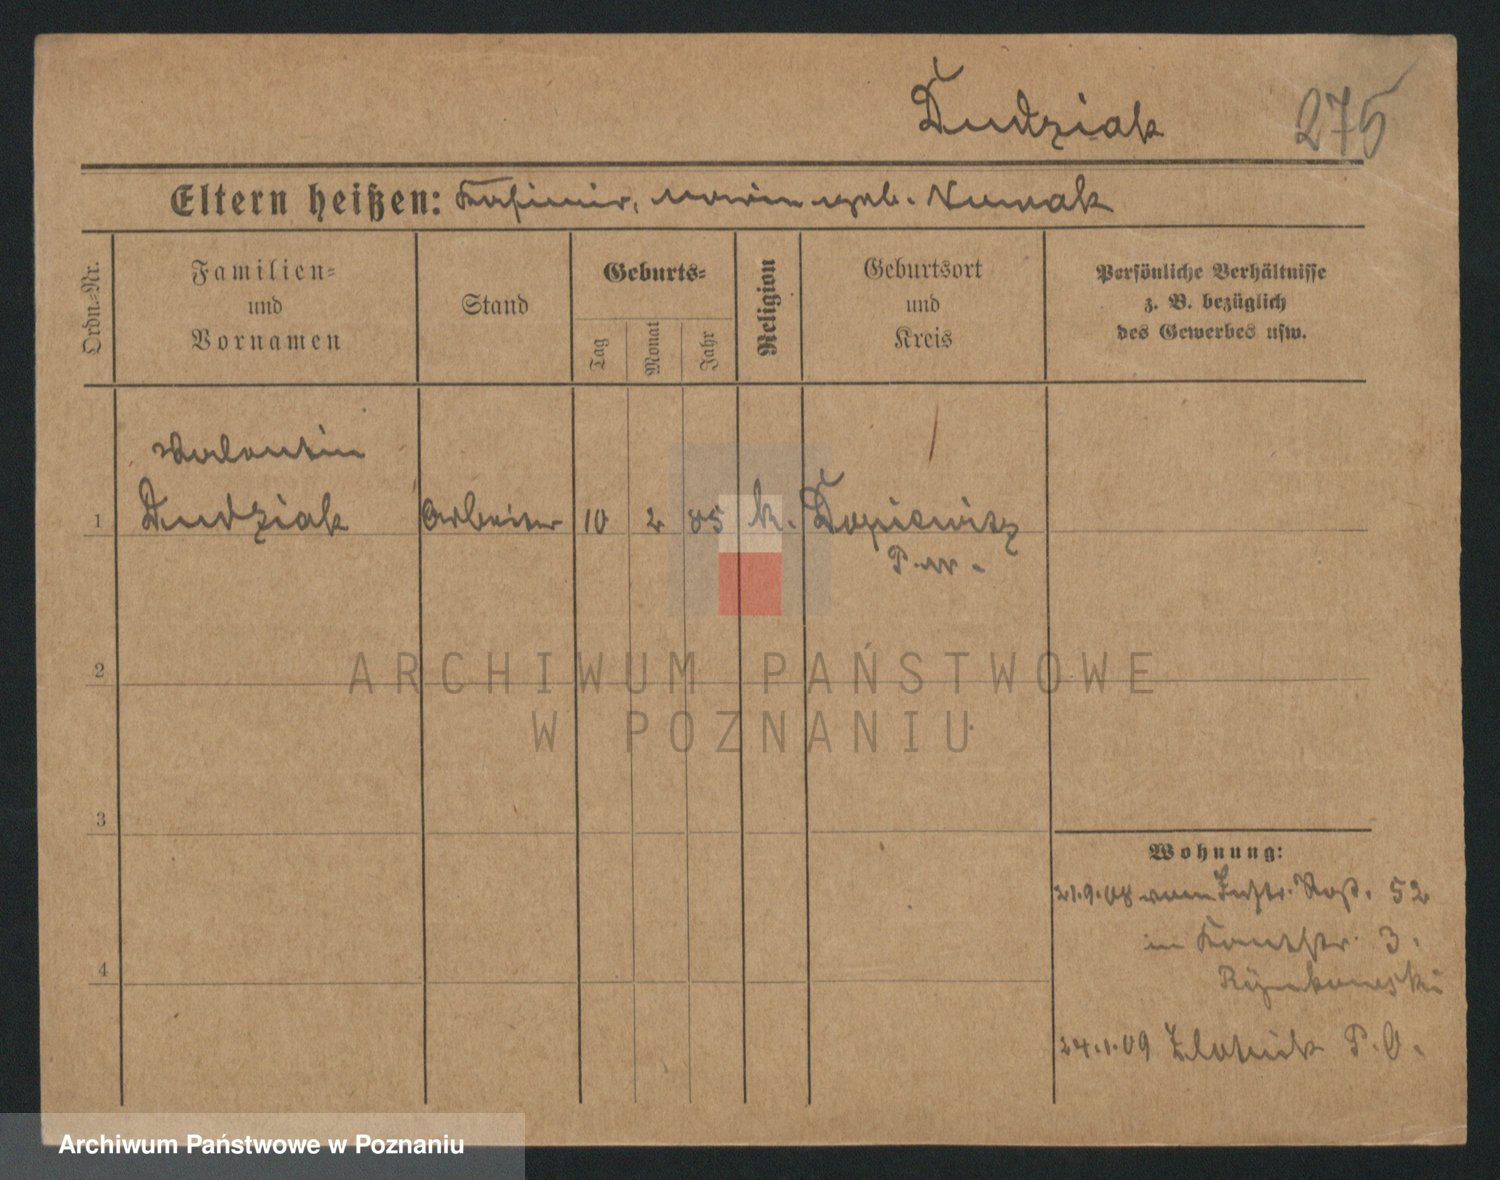 Dudziak 275
Eltern heißen: Kasimir, Marie geb. Nowak
Ordn.=Nr.
Familien=
und
Vornamen
Stand
Geburts=
Tag
Monat
Jahr
Religion
Geburtsort
und
Kreis
Persönliche Verhältnisse
z. B. bezüglich
des Gewerbes usw.
Valentin
1 Dudziak Arbeiter 10 2 85 k. Dopiewitz
P. W.
2
3
4
Wohnung:
21.9.08 vom 52
in Kantstr. 3.
Rynkowski
24.1.09 Zlotnik P. O.
ARCHIWUM PAŃSTWOWE
W POZNANIU
Archiwum Państwowe w Poznaniu